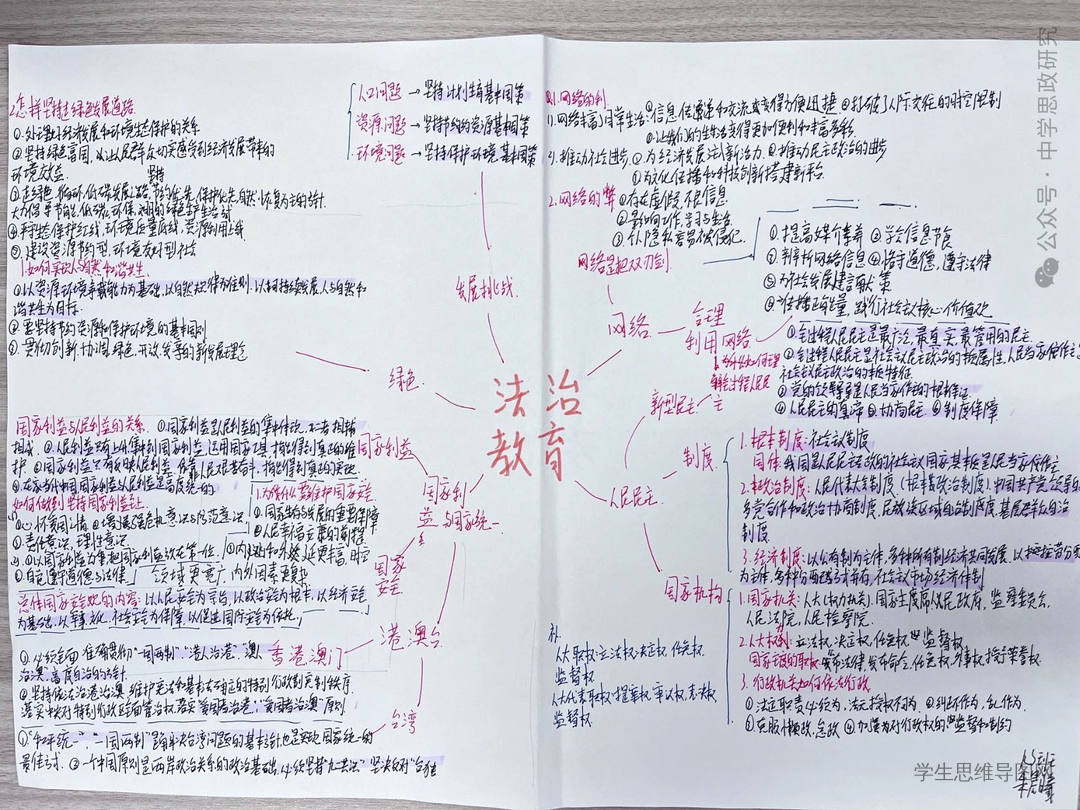 2.怎样坚持走绿色发展道路
①处理好经济发展和环境生态保护的关系
②坚持绿色富国,以让人民群众切实感受到经济发展带来的
环境效益.
坚持
③走绿色、循环、低碳发展之路,节约优先、保护优先、自然恢复为主的方针
大力倡导节能、低碳、环保、文明的绿色生产生活方式
④严守生态保护红线、环境质量底线、资源利用上线
⑤建设资源节约型、环境友好型社会
1.如何实现人与自然和谐共生.
①以资源环境承载能力为基础,以自然规律为准则,以可持续发展、人与自然和
谐共生为目标.
②要坚持节约资源和保护环境的基本国策
③贯彻创新、协调、绿色、开放、共享的新发展理念
人口问题 → 坚持计划生育基本国策
资源问题 → 坚持节约资源基本国策
环境问题 → 坚持保护环境基本国策
发展挑战
绿色
1.网络的利
1)网络丰富了日常生活:①信息传递和交流变得方便迅捷 ②打破了人际交往的时空限制
③让我们的生活变得更加便利和丰富多彩.
2)推动社会进步:①为经济发展注入新活力.②推动民主政治的进步
③为文化传播和科技创新搭建新平台
2.网络的弊 ①存在虚假、不良信息
②影响工作、学习与生活
③个人隐私容易被侵犯.
网络是把双刃剑
①提高媒介素养 ②学会信息节食
③辨析网络信息 ④恪守道德、遵守法律
⑤为社会发展建言献策
⑥传播正能量,践行社会主义核心价值观
网络
合理
利用网络
法治
教育
新型民主
①全过程人民民主是最广泛、最真实、最管用的民主
②全过程人民民主是社会主义民主政治的本质属性,人民当家作主
社会主义民主政治的本质特征
③党的领导是人民当家作主的根本保证
④人民民主的真谛 ⑤协商民主 ⑥制度保障
人民民主
制度
1.根本制度:社会主义制度
国体:我国是人民民主专政的社会主义国家,其本质是人民当家作主
2.政治制度:人民代表大会制度(根本政治制度).中国共产党领导的
多党合作和政治协商制度、民族区域自治制度、基层群众自治
制度.
3.经济制度:以公有制为主体,多种所有制经济共同发展、以按劳分配
为主体,多种分配方式并存,社会主义市场经济体制
国家机构
1.国家机关:人大(权力机关).国家主席.人民政府,监察委员会.
人民法院,人民检察院.
2.人大职权:立法权、决定权、任免权、监督权.
国家主席的职权:公布法律、发布命令、任免权、外事权、授予荣誉权.
3.行政机关如何依法行政
①法定职责必须为、法无授权不可为. ②纠正不作为、乱作为.
③克服懒政、怠政 ④加强对行政权的监督和制约
补.
人大职权:立法权.决定权.任免权.
监督权
人大代表职权:提案权.审议权.表决权
监督权
国家利益与人民利益的关系.①国家利益是人民利益的集中体现.二者相辅
相成.②人民利益只有上升、集中到国家利益,运用国家工具,才能得到真正的维
护.③国家利益只有反映人民利益,依靠人民艰苦奋斗,才能得到真正的实现
④在当代中国国家利益与人民利益是高度统一的
国家利益
如何做到坚持国家利益至上
①心怀爱国之情 ②增强危机意识与防范意识
③责任意识、理性意识
④以国家利益为重,把国家利益放在第一位.
⑤自觉遵守道德与法律.
1.为什么要维护国家安全
①国家生存与发展的重要保障
②人民幸福安康的前提
③内涵和外延更丰富,时空
领域更宽广,内外因素更复杂
总体国家安全观的内容:以人民安全为宗旨,以政治安全为根本,以经济安全
为基础,以军事、文化、社会安全为保障,以促进国际安全为依托.
国家利
益与国家统一
国家
安全
港澳台
香港澳门
台湾
①必须全面准确贯彻“一国两制”“港人治港”“澳人
治澳”高度自治的方针
②坚持依法治港治澳,维护宪法和基本法确定的特别行政区宪制秩序.
落实中央对特别行政区全面管治权.落实“爱国者治港”“爱国者治澳”原则
①“和平统一、一国两制”是解决台湾问题的基本方针,也是实现国家统一的
最佳方式. ②一个中国原则是两岸政治关系的政治基础.必须坚持“九二共识”坚决反对“台独”
公众号·中学思政研究
学生思维导图网